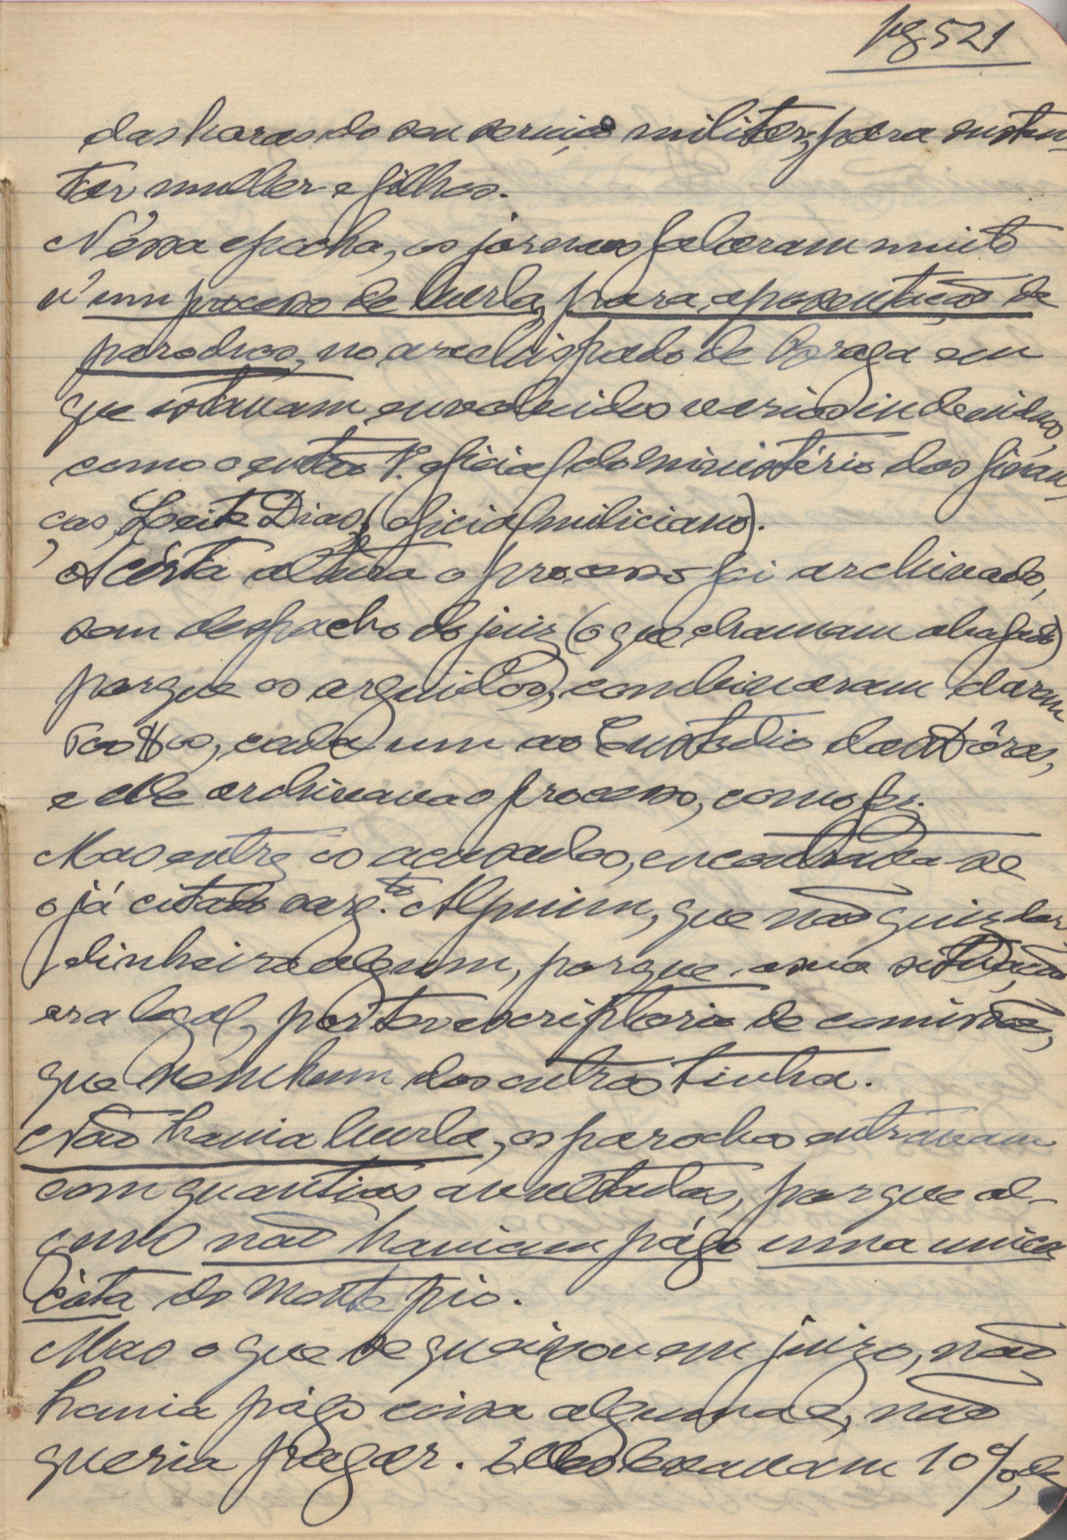 pg 521
das horas do seu serviço militar, para susten-
tar mulher e filhos.
N'éssa epocha, os jornaes falaram muito
n'um processo de burla, para aposentação de
parochos, no arcebispado de Braga em
que estavam envolvidos varios individuos,
como o então 1º. oficial do Ministério das finan-
ças, Leite Dias, (oficial miliciano).
A cérta altura o processo foi archivado,
sem despacho do juiz (o que chamam abafado)
porque os arguidos, combinaram darem
cada um ao Custodio
e elle archivava o processo, como foi.
Mas entre os acusados, encontrava-se
o já citado sarg.to Alpuim, que não quiz dar
dinheiro algum, porque a sua situação
era legal, por ter escriptorio de comissões,
que nenhum dos outros tinha.
Não havia burla, os parochos entravam
com quantias avultadas, porque al-
guns não haviam págo uma unica
cóta do Monte pio.
Mas o que se queixou em juizo, não
havia págo coisa alguma e, não
queria pagar. Elles levavam 10%, de